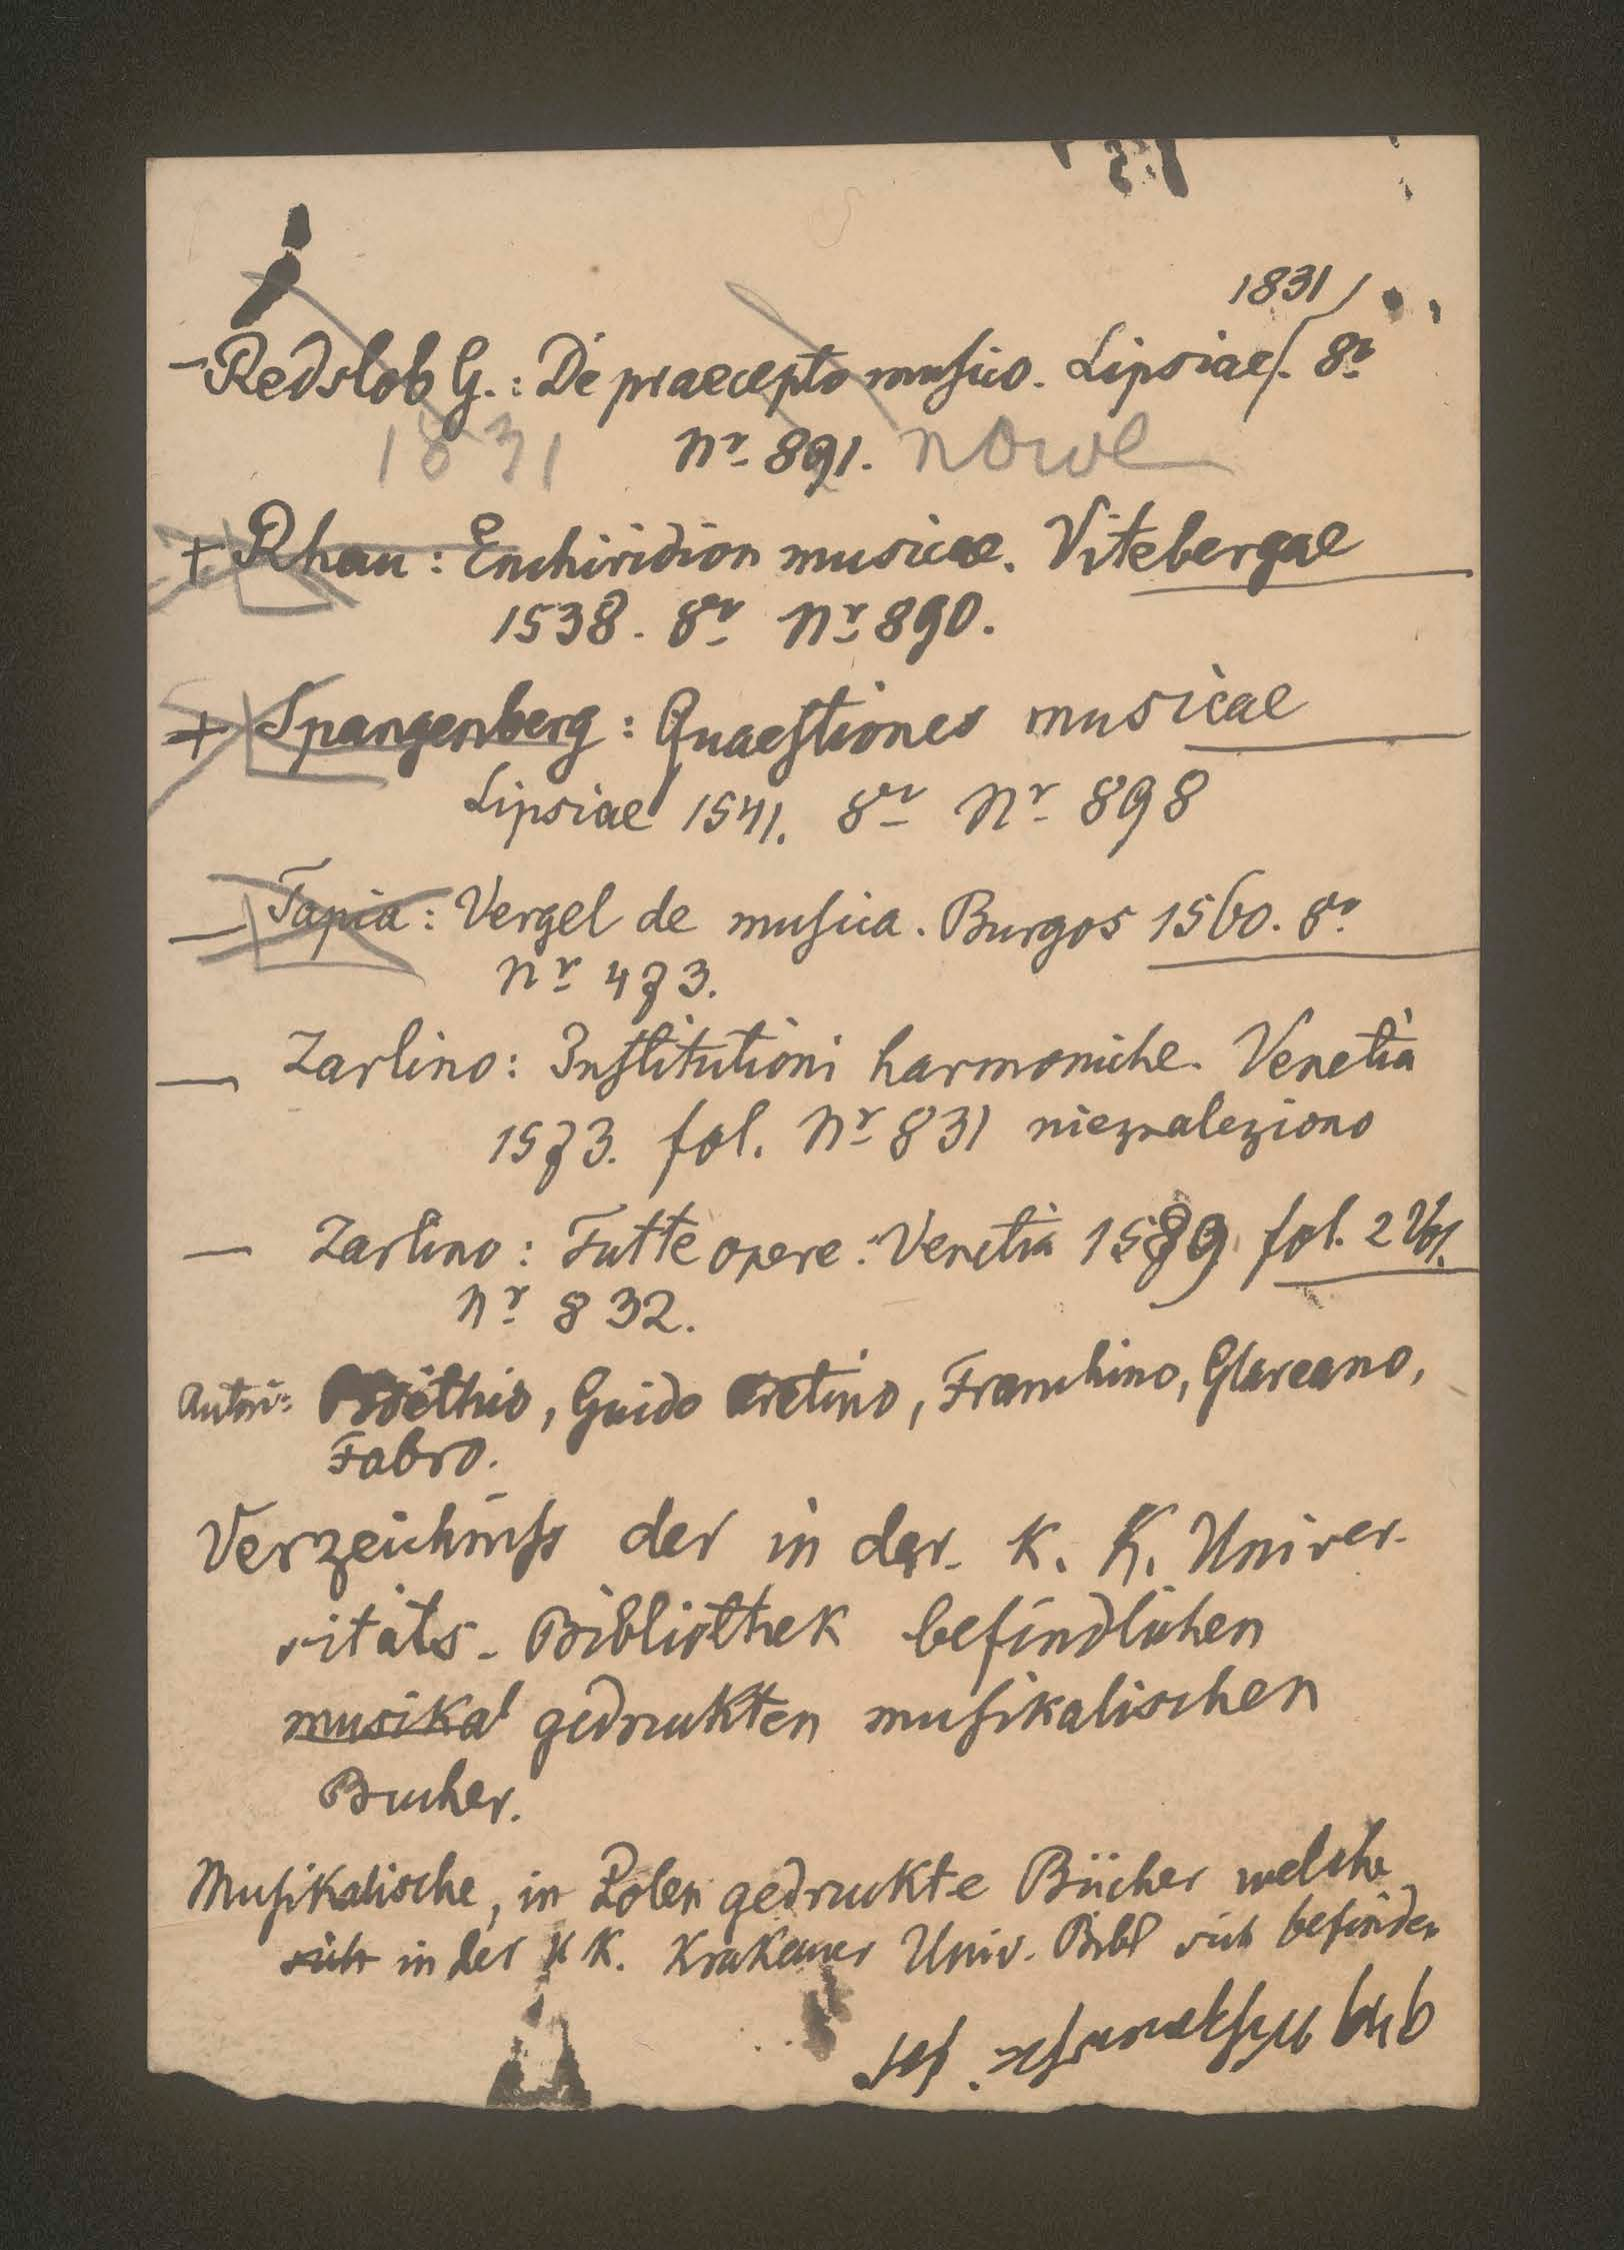 1831
– Redslob G.: De praecepto musico. Lipsiae. 8º
1831 Nr 891. nowe
+ Rhau: Enchiridion musicae. Vitebergae
1538. 8º Nr 890.
+ Spangenberg: Quaestiones musicae
Lipsiae 1541. 8º Nr 898
– Tapia: Vergel de musica. Burgos 1560. 8º
Nr 473.
– Zarlino: Institutioni harmoniche. Venetia
1573. fol. Nr 831 nieznaleziono
– Zarlino: Tutte opere. Venetia 1589 fol. 2 Vol.
Nr 832.
Autori: Boëthio, Guido Aretino, Franchino, Glareano,
Fabro.
Verzeichniss der in der K. K. Univer-
sitäts-Bibliothek befindlichen
musikal gedruckten musikalischen
Bucher.
Musikalische, in Polen gedruckte Bücher welche
sich in der K K. Krakauer Univ. Bibl sich befinden